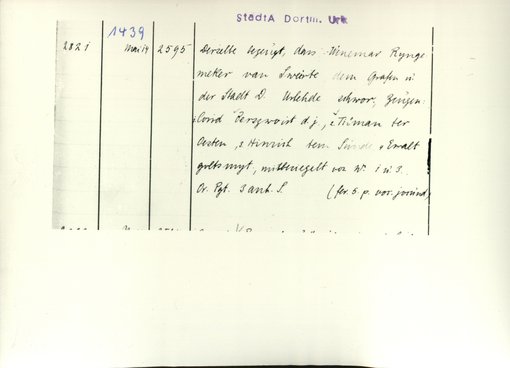 StadtA Dortm. Urk
1439
2821 Mai 14 2595 Derselbe bezeugt, dass Wenemar Rynge
meker van Swerte dem Grafen u
der Stadt D. Urfehde schwor, Zeugen:
Cord d. j., 2 Tilman ter
Oesten, 3 Hinrich tem Sunde 4 Ewalt
goltsmyt, mitbesiegelt von Nr 1 u 3.
Or. Pgt. 3 anh. S. (fer. 5 p. voc. jocund.)